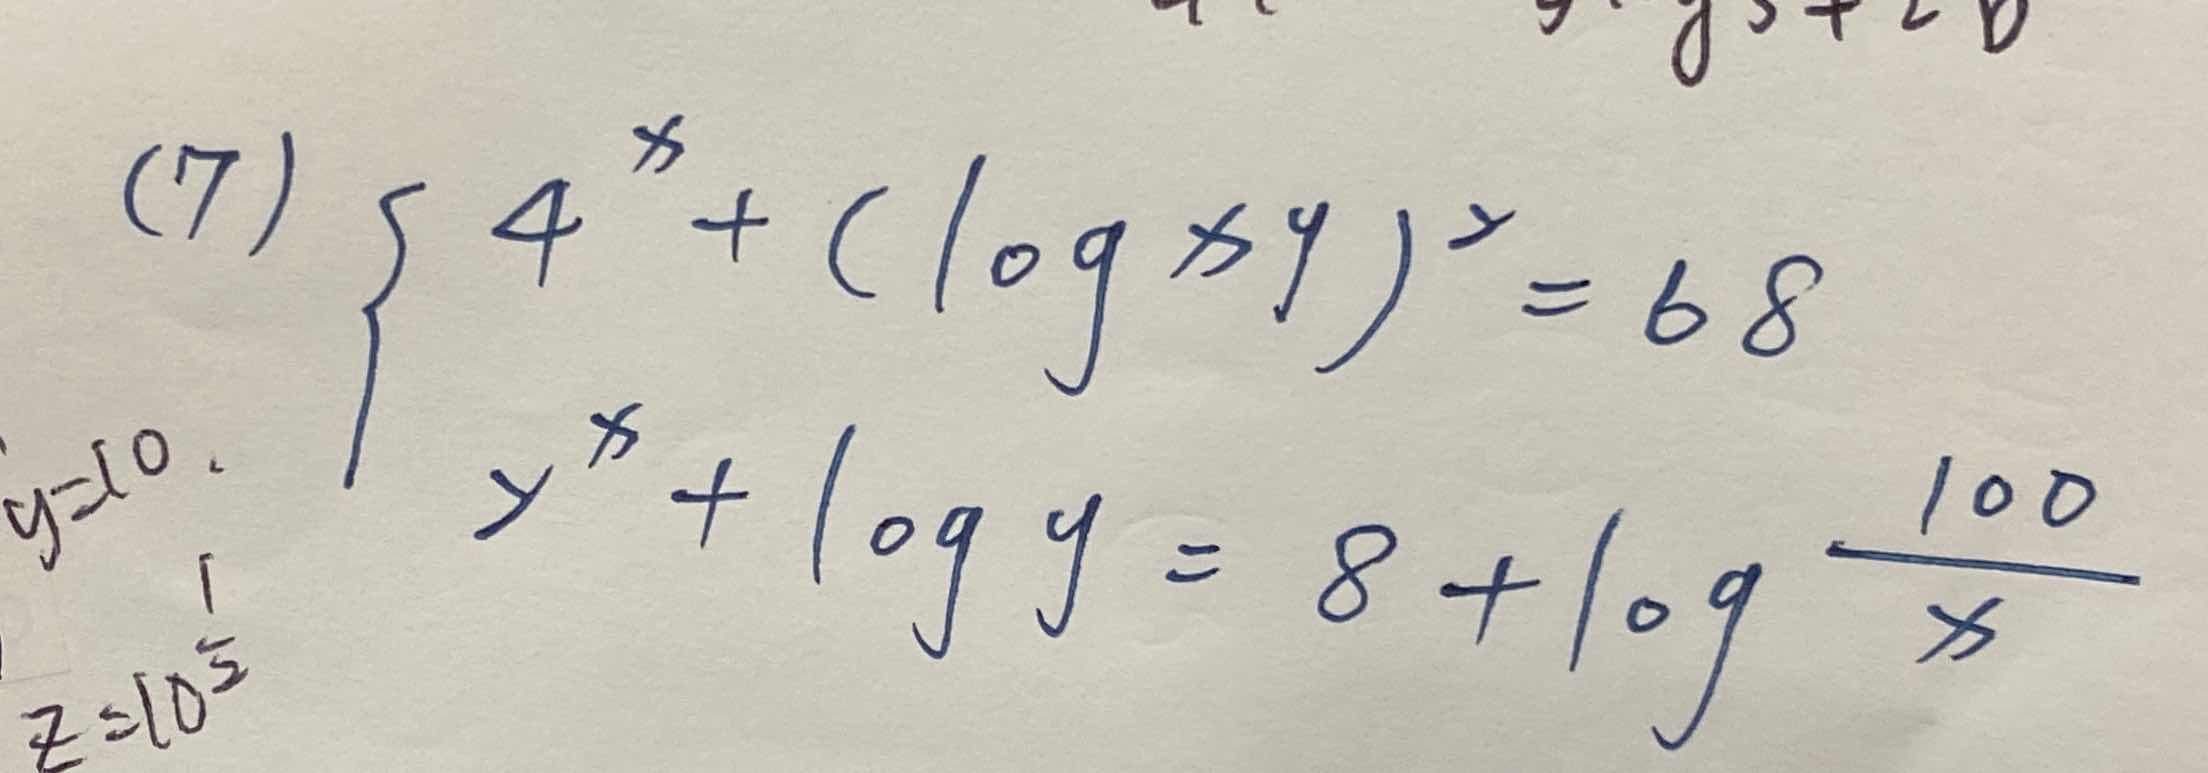 (7) { 4^x + (log xy)^2 = 68
2^x + log y = 8 + log 100/x
y=10.